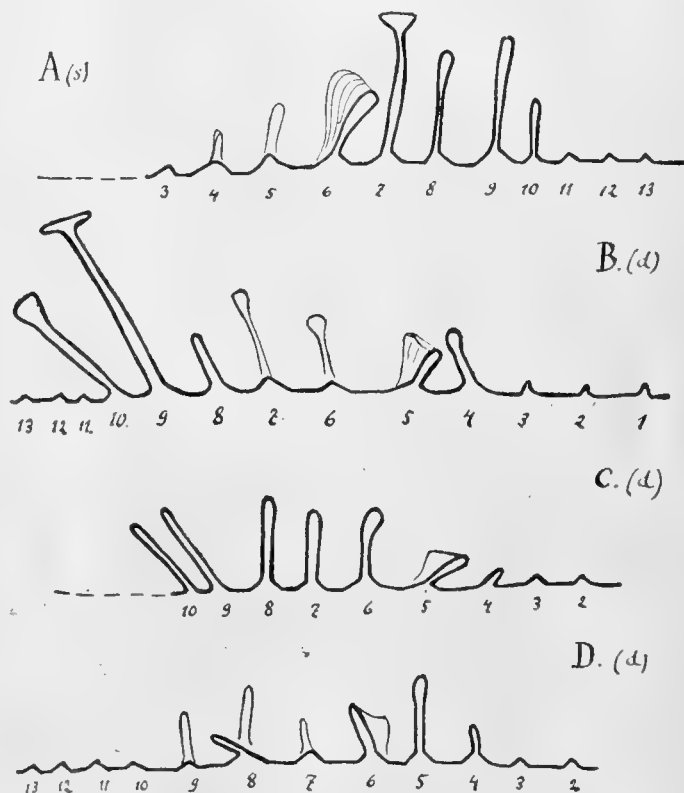 A (s)
3 4 5 6 7 8 9 10 11 12 13
B. (d)
13 12 11. 10. 9 8 7. 6 5 4 3 2 1
C. (d)
10 9 8 7 6 5 4 3 2
D. (d)
13 12 11 10 9 8 7 6 5 4 3 2